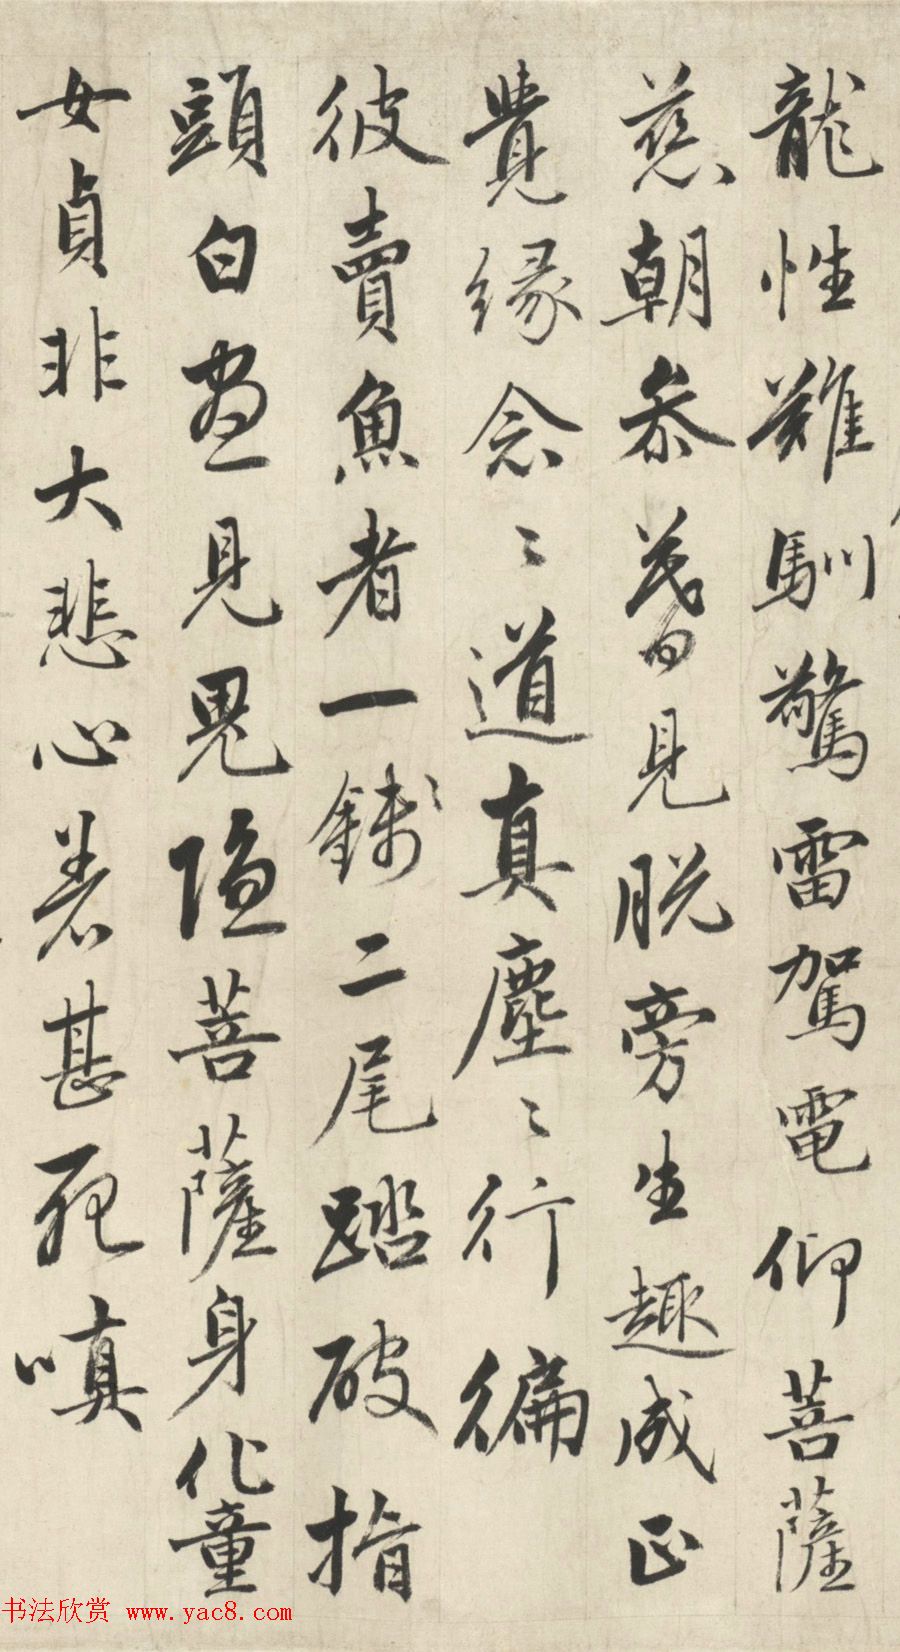 龍性難馴驚雷駕電仰菩薩
慈朝參暮見脫旁生趣成正
覺緣念〻道真塵〻行徧
彼賣魚者一錢二尾踏破指
頭白晝見鬼隱菩薩身化童
女貞非大悲心著甚死嗔
书法欣赏 www.yac8.com